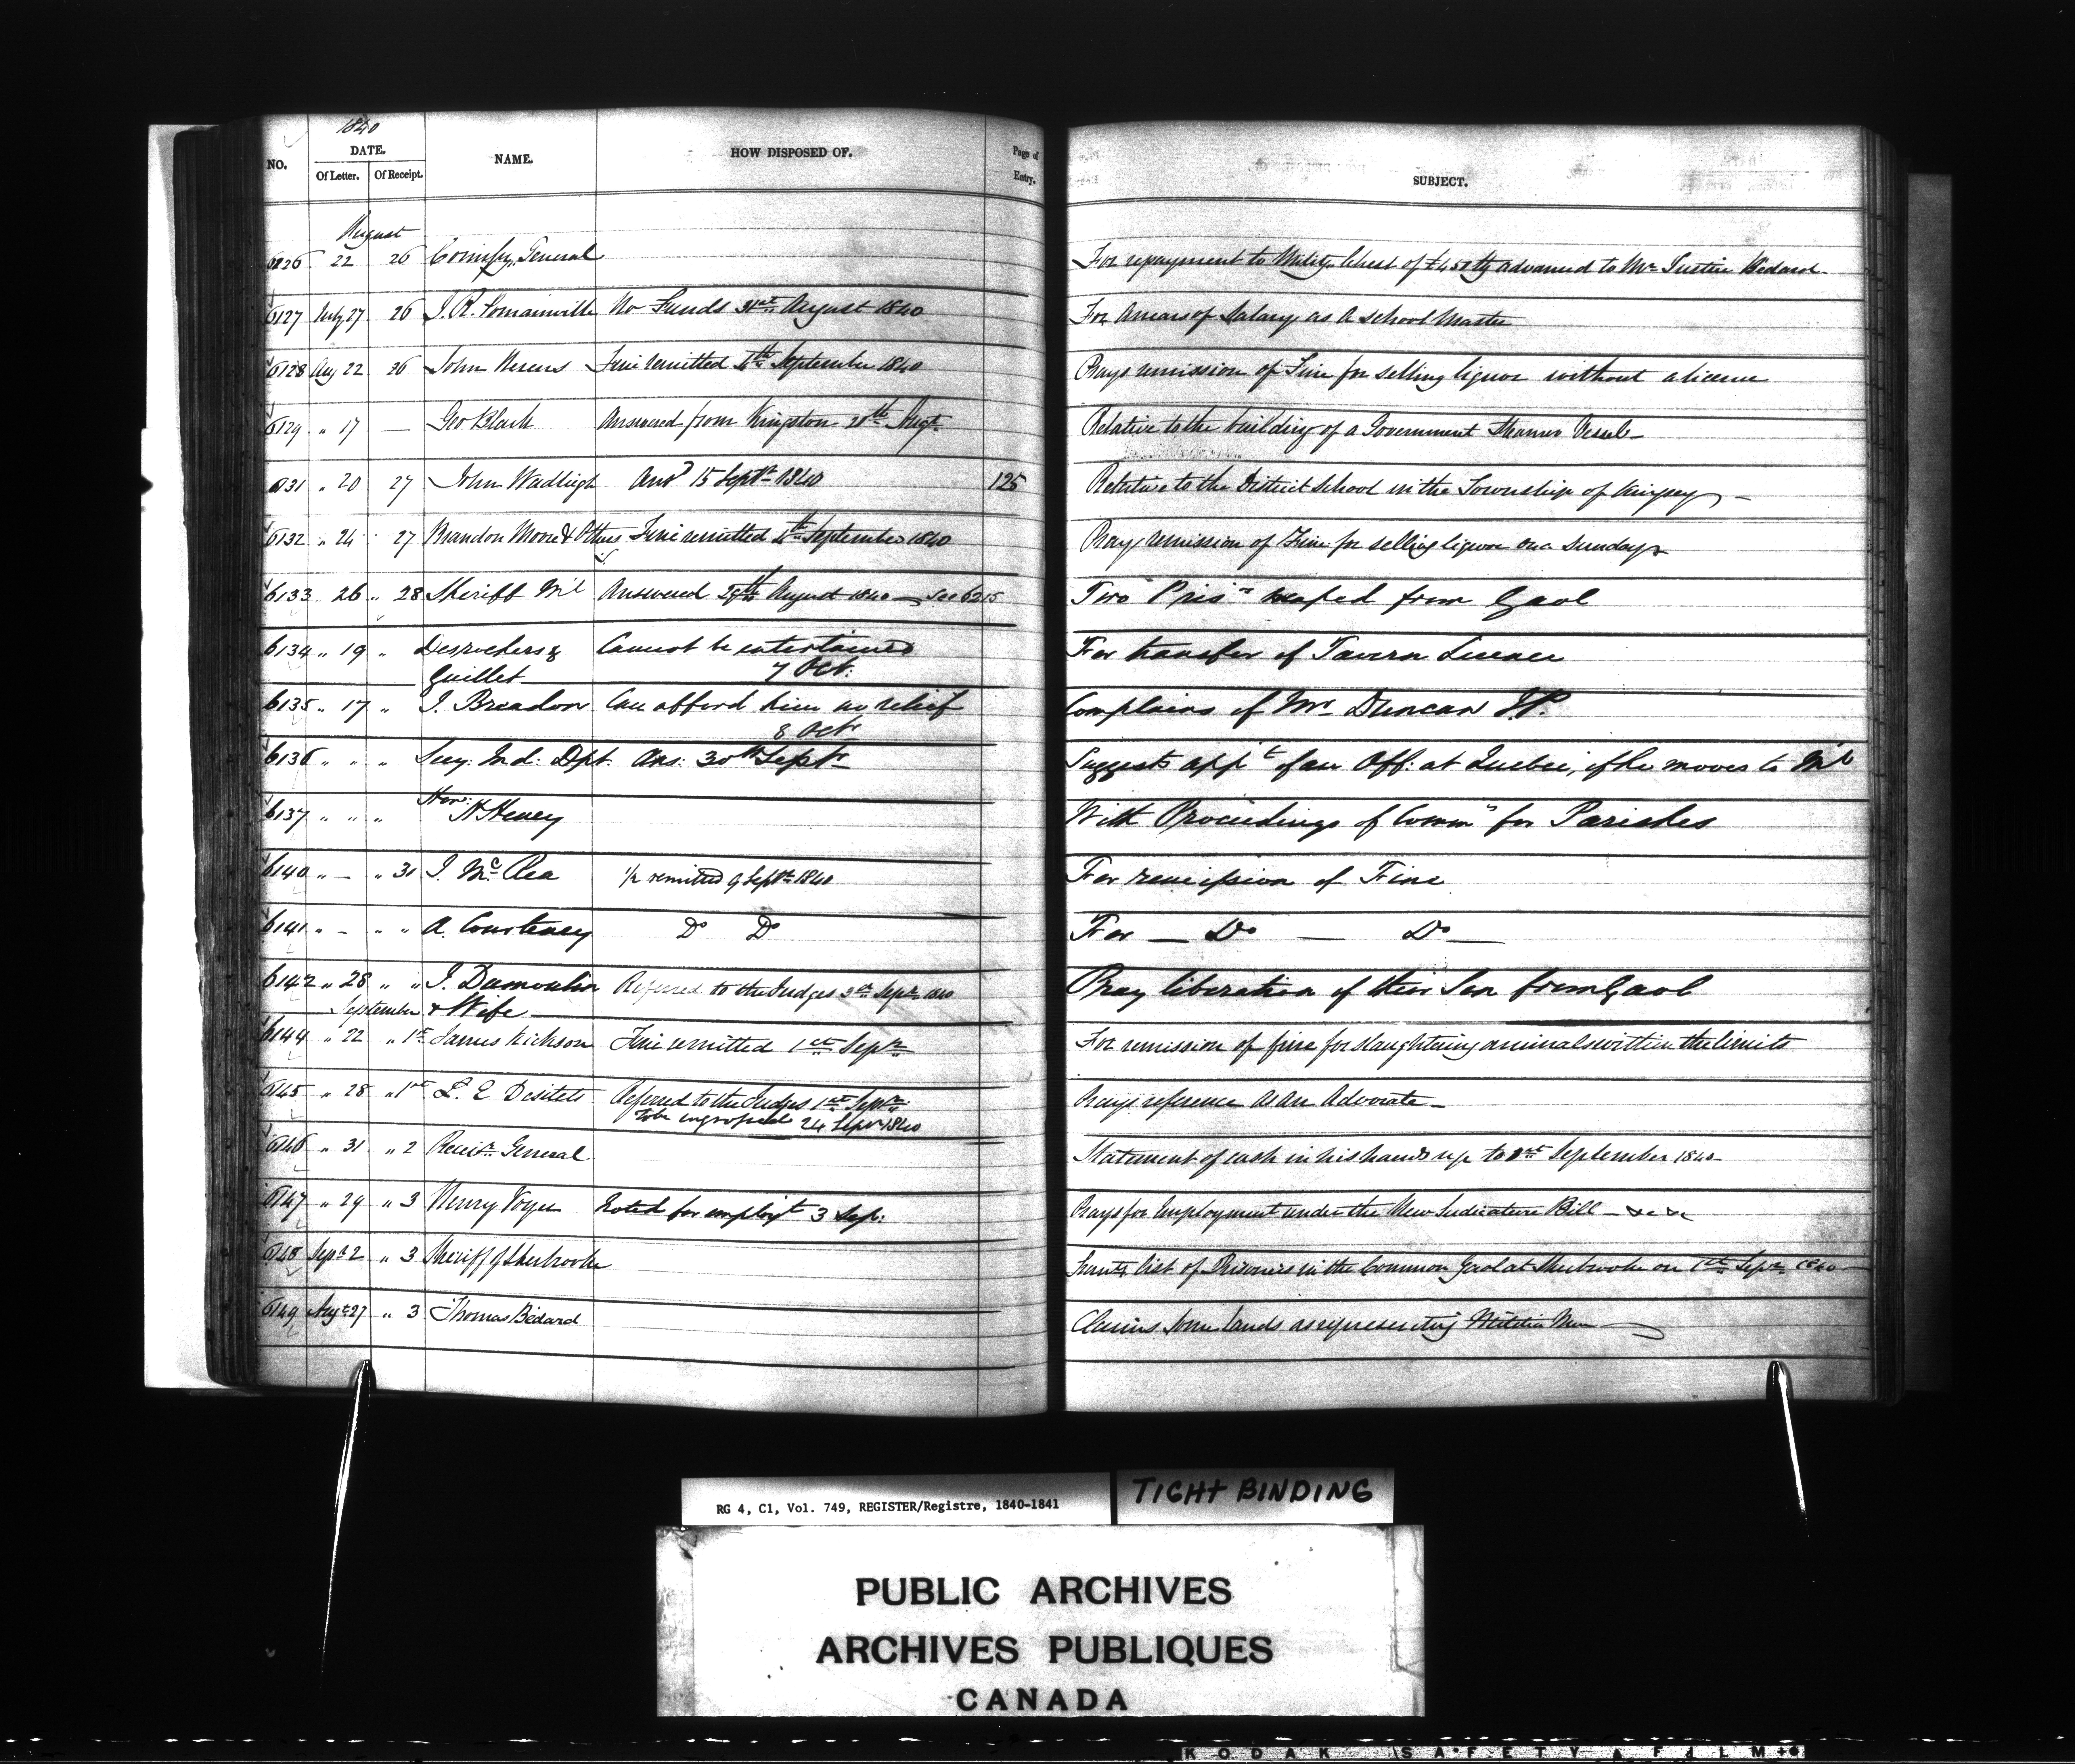 1840
NO. DATE. NAME. HOW DISPOSED OF. Page of Entry. SUBJECT.
Of Letter. Of Receipt.
August
6126 22 26 Commissy. General For repayment to Military Chest of £450 Stg advanced to Mr. Justice Bédard
6127 July 27 26 J. R. No Funds 31st August 1840 For Arrears of Salary as a School Master
6128 Aug 22 26 John Fine remitted 4th September 1840 Prays remission of Fine for selling liquor without a licence
6129 " 17 — Geo Black Answered from Kingston 28th Augt. Relative to the building of a Government Steamer Vessel
6131 " 20 27 John Wadleigh Ansd 15 Septr. 1840 125 Relative to the District School in the Township of Kingsey
6132 " 24 27 Brandon Moore & Others Fine remitted 4th September 1840 Pray remission of Fine for selling liquor on a Sunday
6133 26 " 28 Sheriff Ml Answered 29th August 1840 — See 6215 Two Prisrs escaped from Gaol
6134 " 19 " Desrochers & Cannot be entertained For transfer of Tavern Licence
Guillet 7 Oct.
6135 " 17 " J. Breadon Can afford him no relief Complains of Mr. Duncan J.P.
8 Oct
6136 " " " Secy. Ind: Dpt. Ans. 30th Septr. Suggests appt of an Off: at Quebec, if he moves to Ml
6137 " " " Hon: H Heney With Proceedings of Commrs for Parishes
6140 " — " 31 J. McRea 1/2 remitted 9 Septr. 1840 For remission of Fine
6141 " — " " A. Courteney Do Do For — Do — Do —
6142 " 28 " " J. Dumoulin Referred to the Judges 3rd Septr. 1840 Pray liberation of their Son from Gaol
September & Wife
6144 " 22 " 1st James Fine remitted 1st Septr. For remission of fine for slaughtering animals within the limits
6145 " 28 " 1st L. E Desilets Referred to the Judges 1st Septr. Prays reference as an Advocate
To be engrossed 24 Septr 1840
6146 " 31 " 2 Receivr. General Statement of cash in his hands up to 1st September 1840
6147 " 29 " 3 Henry Voyer Noted for employt 3 Sep: Prays for Employment under the New Judicature Bill — &c &c
6148 Septr. 2 " 3 Sheriff of Sherbrooke list of Prisoners in the Common Gaol at Sherbrooke on 1st Septr. 1840
6149 Augt. 27 " 3 Thomas Bédard Claims some lands as representing Militia Men
RG 4, C1, Vol. 749, REGISTER/Registre, 1840-1841
TIGHT BINDING
PUBLIC ARCHIVES
ARCHIVES PUBLIQUES
CANADA
KODAK SAFETY FILM